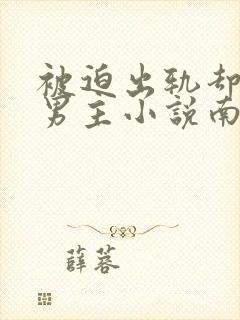 被迫出轨却
男主小說南
薛蓉